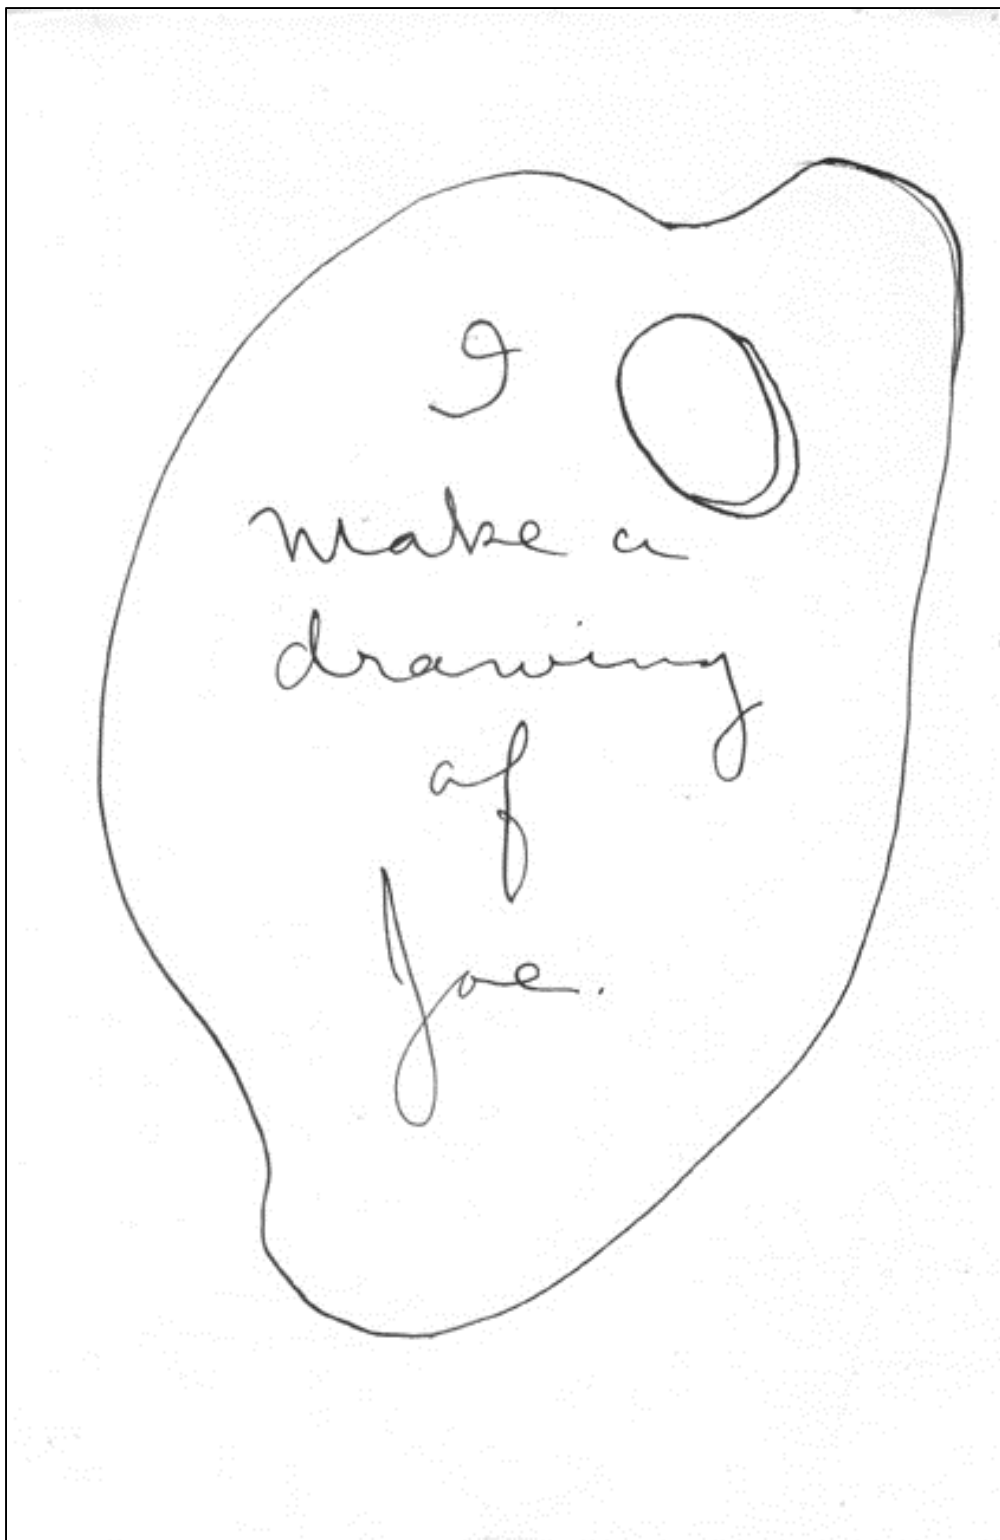 I
make a
drawing
of
Joe.